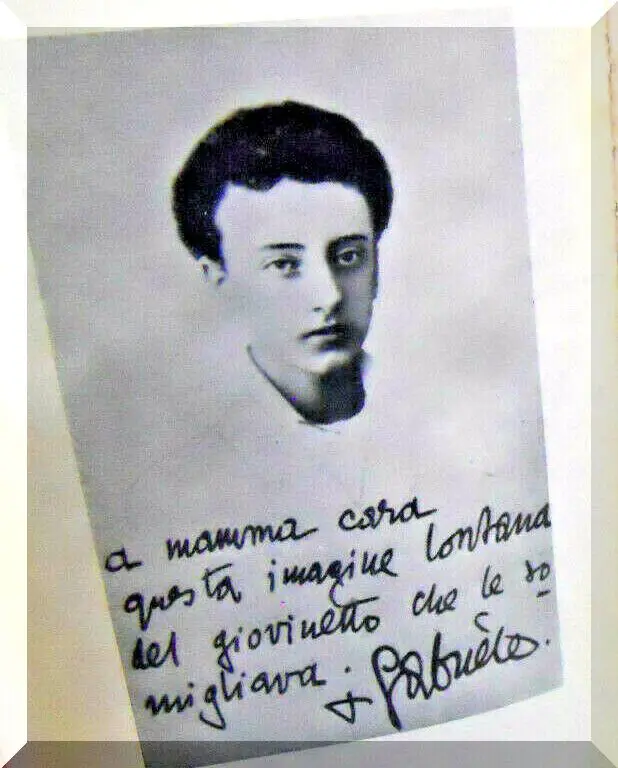 a mamma cara
questa imagine lontana
del giovinetto che le so
migliava.
+ Gabriele.